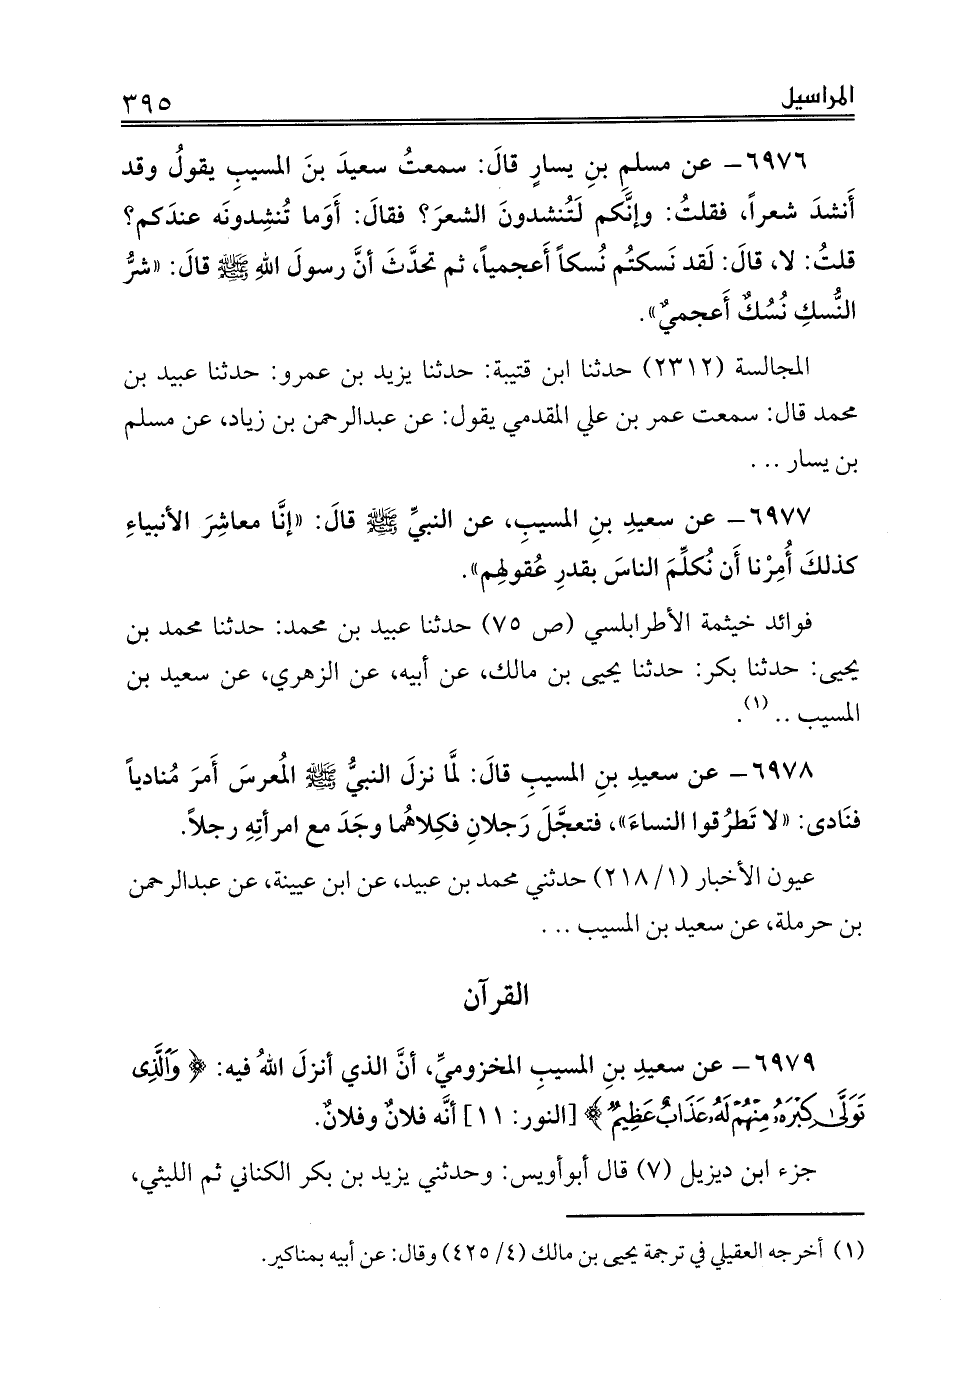 المراسيل ٣٩٥
٦٩٧٦- عن مسلمِ بنِ يسارٍ قالَ: سمعتُ سعيدَ بنَ المسيبِ يقولُ وقد
أَنشدَ شعراً، فقلتُ: وإنَّكم لَتُنشدونَ الشعرَ؟ فقالَ: أَوَما تُنشِدونَه عندَكم؟
قلتُ: لا، قالَ: لَقد نَسكتُم نُسكاً أَعجمياً، ثم تحدَّثَ أنَّ رسولَ اللهِ ﷺ قالَ: «شرُّ
النُّسكِ نُسُكٌ أَعجميٌ».
المجالسة (٢٣١٢) حدثنا ابن قتيبة: حدثنا يزيد بن عمرو: حدثنا عبيد بن
محمد قال: سمعت عمر بن علي المقدمي يقول: عن عبدالرحمن بن زياد، عن مسلم
بن يسار ...
٦٩٧٧- عن سعيدِ بنِ المسيبِ، عن النبيِّ ﷺ قالَ: «إنَّا معاشِرَ الأنبياءِ
كذلكَ أُمِرْنا أن نُكلِّمَ الناسَ بقدرِ عُقولهِم».
فوائد خيثمة الأطرابلسي (ص ٧٥) حدثنا عبيد بن محمد: حدثنا محمد بن
يحيى: حدثنا بكر: حدثنا يحيى بن مالك، عن أبيه، عن الزهري، عن سعيد بن
المسيب .. (١).
٦٩٧٨- عن سعيدِ بنِ المسيبِ قالَ: لمَّا نزلَ النبيُّ ﷺ المُعرسَ أَمرَ مُنادياً
فنَادى: «لا تَطرُقوا النساءَ»، فتعجَّلَ رَجلانِ فكِلاهُما وجَدَ مع امرأتِهِ رجلاً.
عيون الأخبار (١/ ٢١٨) حدثني محمد بن عبيد، عن ابن عيينة، عن عبدالرحمن
بن حرملة، عن سعيد بن المسيب ...
القرآن
٦٩٧٩- عن سعيدِ بنِ المسيبِ المخزوميِّ، أنَّ الذي أنزلَ اللهُ فيه: ﴿وَٱلَّذِى
تَوَلَّىٰ كِبْرَهُۥ مِنْهُمْ لَهُۥ عَذَابٌ عَظِيمٌ﴾ [النور: ١١] أنَّه فلانٌ وفلانٌ.
جزء ابن ديزيل (٧) قال أبوأويس: وحدثني يزيد بن بكر الكناني ثم الليثي،
(١) أخرجه العقيلي في ترجمة يحيى بن مالك (٤/ ٤٢٥) وقال: عن أبيه بمناكير.